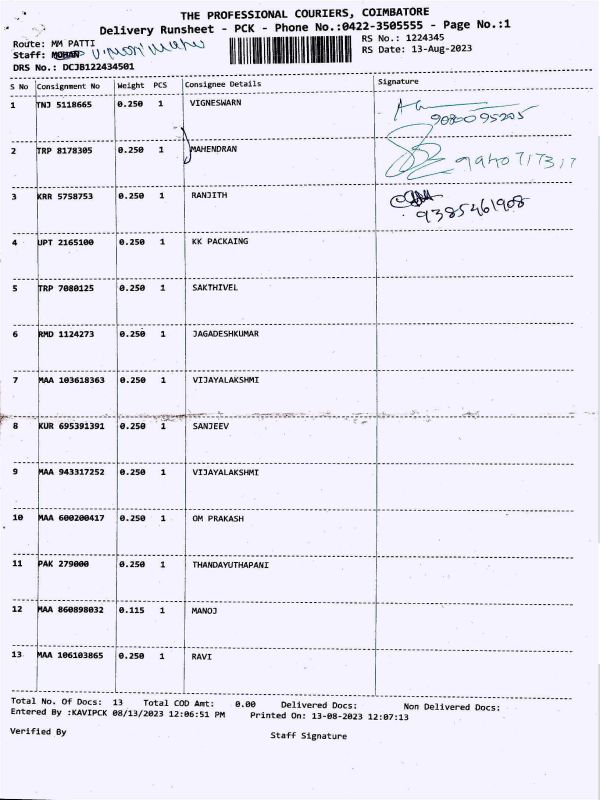 THE PROFESSIONAL COURIERS, COIMBATORE
Delivery Runsheet - PCK - Phone No.:0422-3505555 - Page No.:1
Route: MM PATTI RS No.: 1224345
Staff: MOHAN RS Date: 13-Aug-2023
DRS No.: DCJB122434501
S No Consignment No Weight PCS Consignee Details Signature
1 TNJ 5118665 0.250 1 VIGNESWARN
2 TRP 8178305 0.250 1 MAHENDRAN
3 KRR 5758753 0.250 1 RANJITH 9385461908
4 UPT 2165100 0.250 1 KK PACKAING
5 TRP 7080125 0.250 1 SAKTHIVEL
6 RMD 1124273 0.250 1 JAGADESHKUMAR
7 MAA 103618363 0.250 1 VIJAYALAKSHMI
8 KUR 695391391 0.250 1 SANJEEV
9 MAA 943317252 0.250 1 VIJAYALAKSHMI
10 MAA 600200417 0.250 1 OM PRAKASH
11 PAK 279000 0.250 1 THANDAYUTHAPANI
12 MAA 860898032 0.115 1 MANOJ
13 MAA 106103865 0.250 1 RAVI
Total No. Of Docs: 13 Total COD Amt: 0.00 Delivered Docs: Non Delivered Docs:
Entered By :KAVIPCK 08/13/2023 12:06:51 PM Printed On: 13-08-2023 12:07:13
Verified By Staff Signature